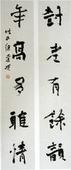 詩老有餘韻
年高多雅情